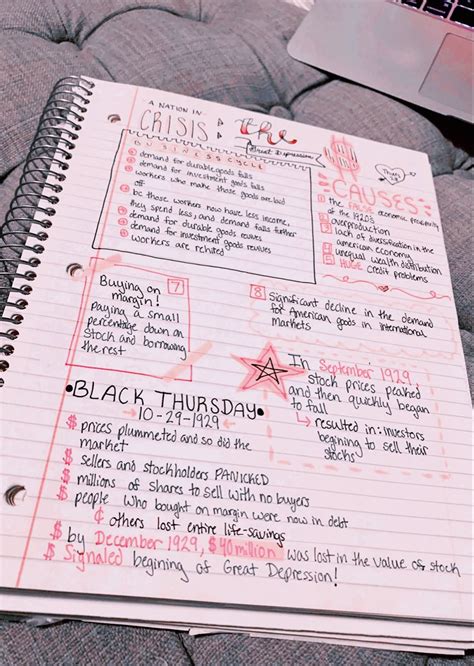 A NATION IN
CRISIS: the
Great Depression
BUSINESS CYCLE
demand for durable goods falls
demand for investment goods falls
workers who make those goods are laid
off
bc those workers now have less income,
they spend less, and demand falls further
demand for durable goods revives
demand for investment goods revives
workers are rehired
CAUSES
1 the FALSE economic prosperity
of the 1920's
2 overproduction
3 lack of diversification in the
american economy
4 unequal wealth distribution
5 HUGE credit problems
7
Buying on
margin!
Paying a small
percentage down on
Stock and borrowing
the rest
8 Significant decline in the demand
for American goods in international
markets
In September 1929,
stock prices peaked
and then quickly began
to fall
↳ resulted in: investors
begining to sell their
stocks
•BLACK THURSDAY•
→10-29-1929←
$ prices plummeted and so did the
market
$ sellers and stockholders PANICKED
$ millions of shares to sell with no buyers
$ people who bought on margin were now in debt
¢ others lost entire life-savings
$ by December 1929, $40 million was lost in the value of stock
$ Signaled begining of Great Depression!